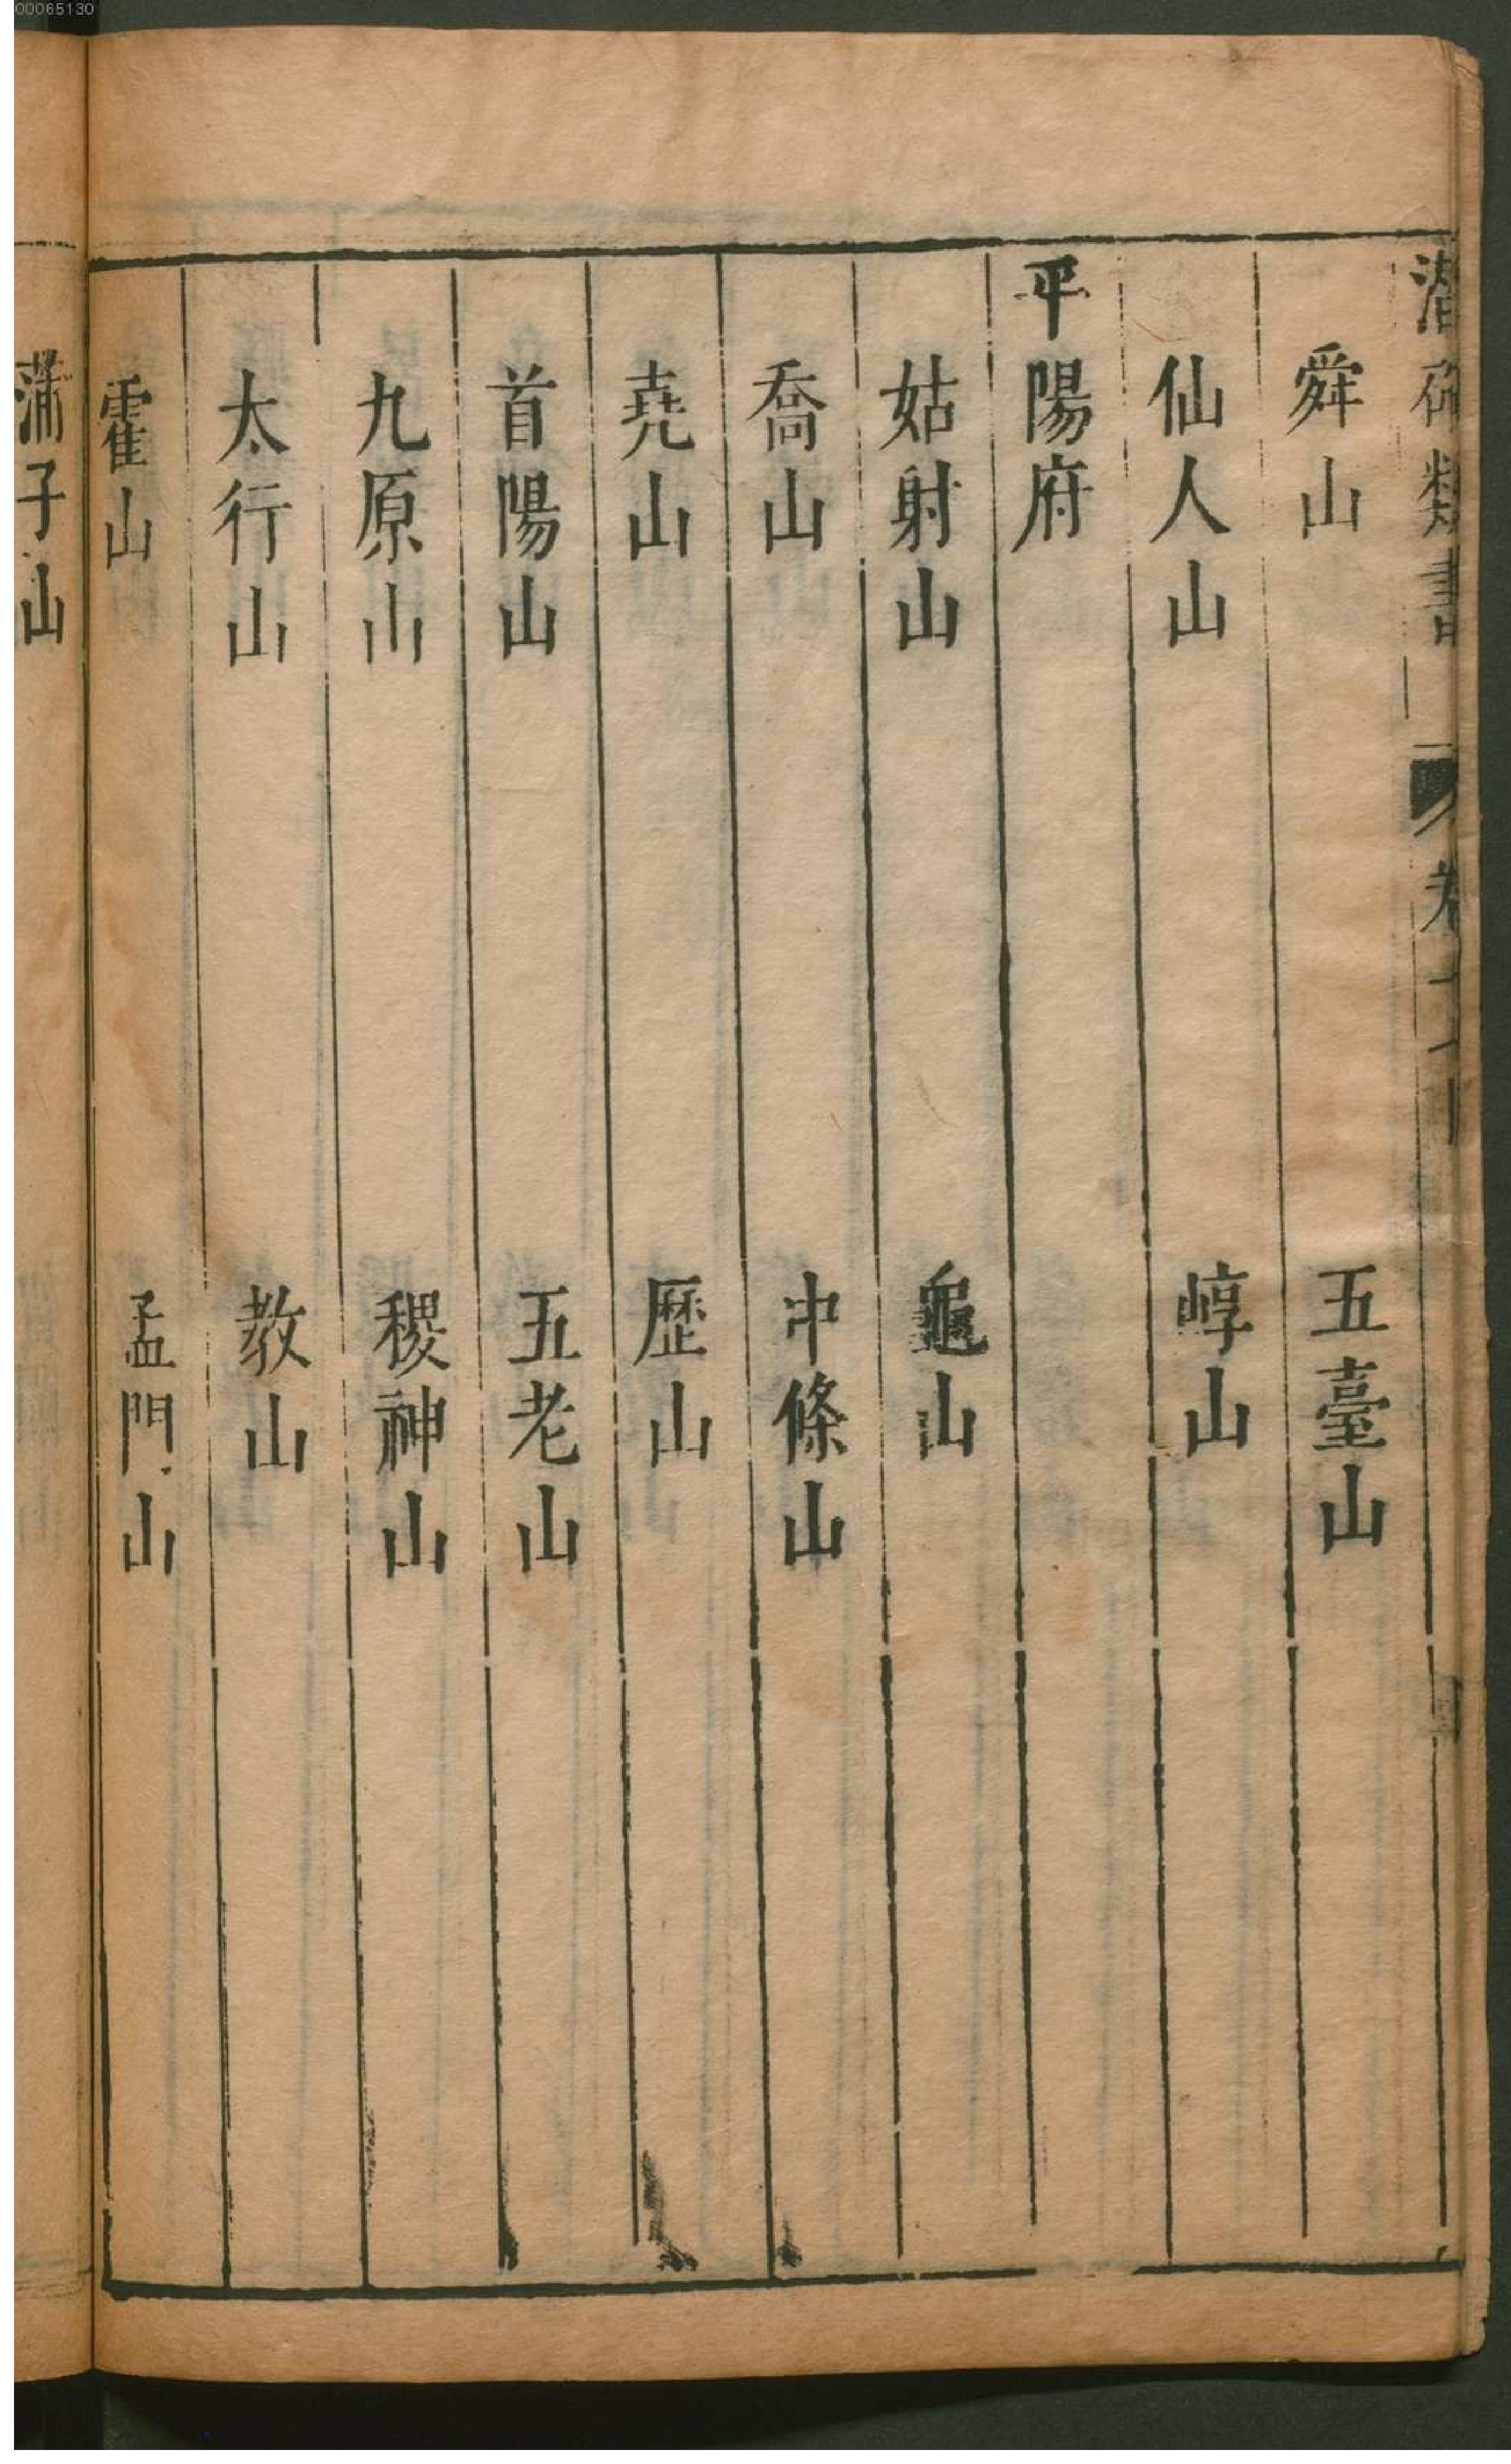 00065130
潛確類書
卷十
舜山 五臺山
仙人山 崞山
平陽府
姑射山 龜山
喬山 中條山
堯山 歷山
首陽山 五老山
九原山 稷神山
太行山 教山
霍山 孟門山
蒲子山